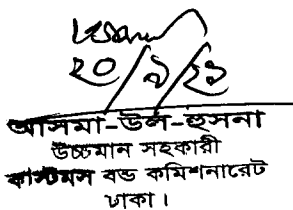 ২০/৯/২১
আসমা-উল-হুসনা
উচ্চমান সহকারী
কাস্টমস বন্ড কমিশনারেট
ঢাকা।